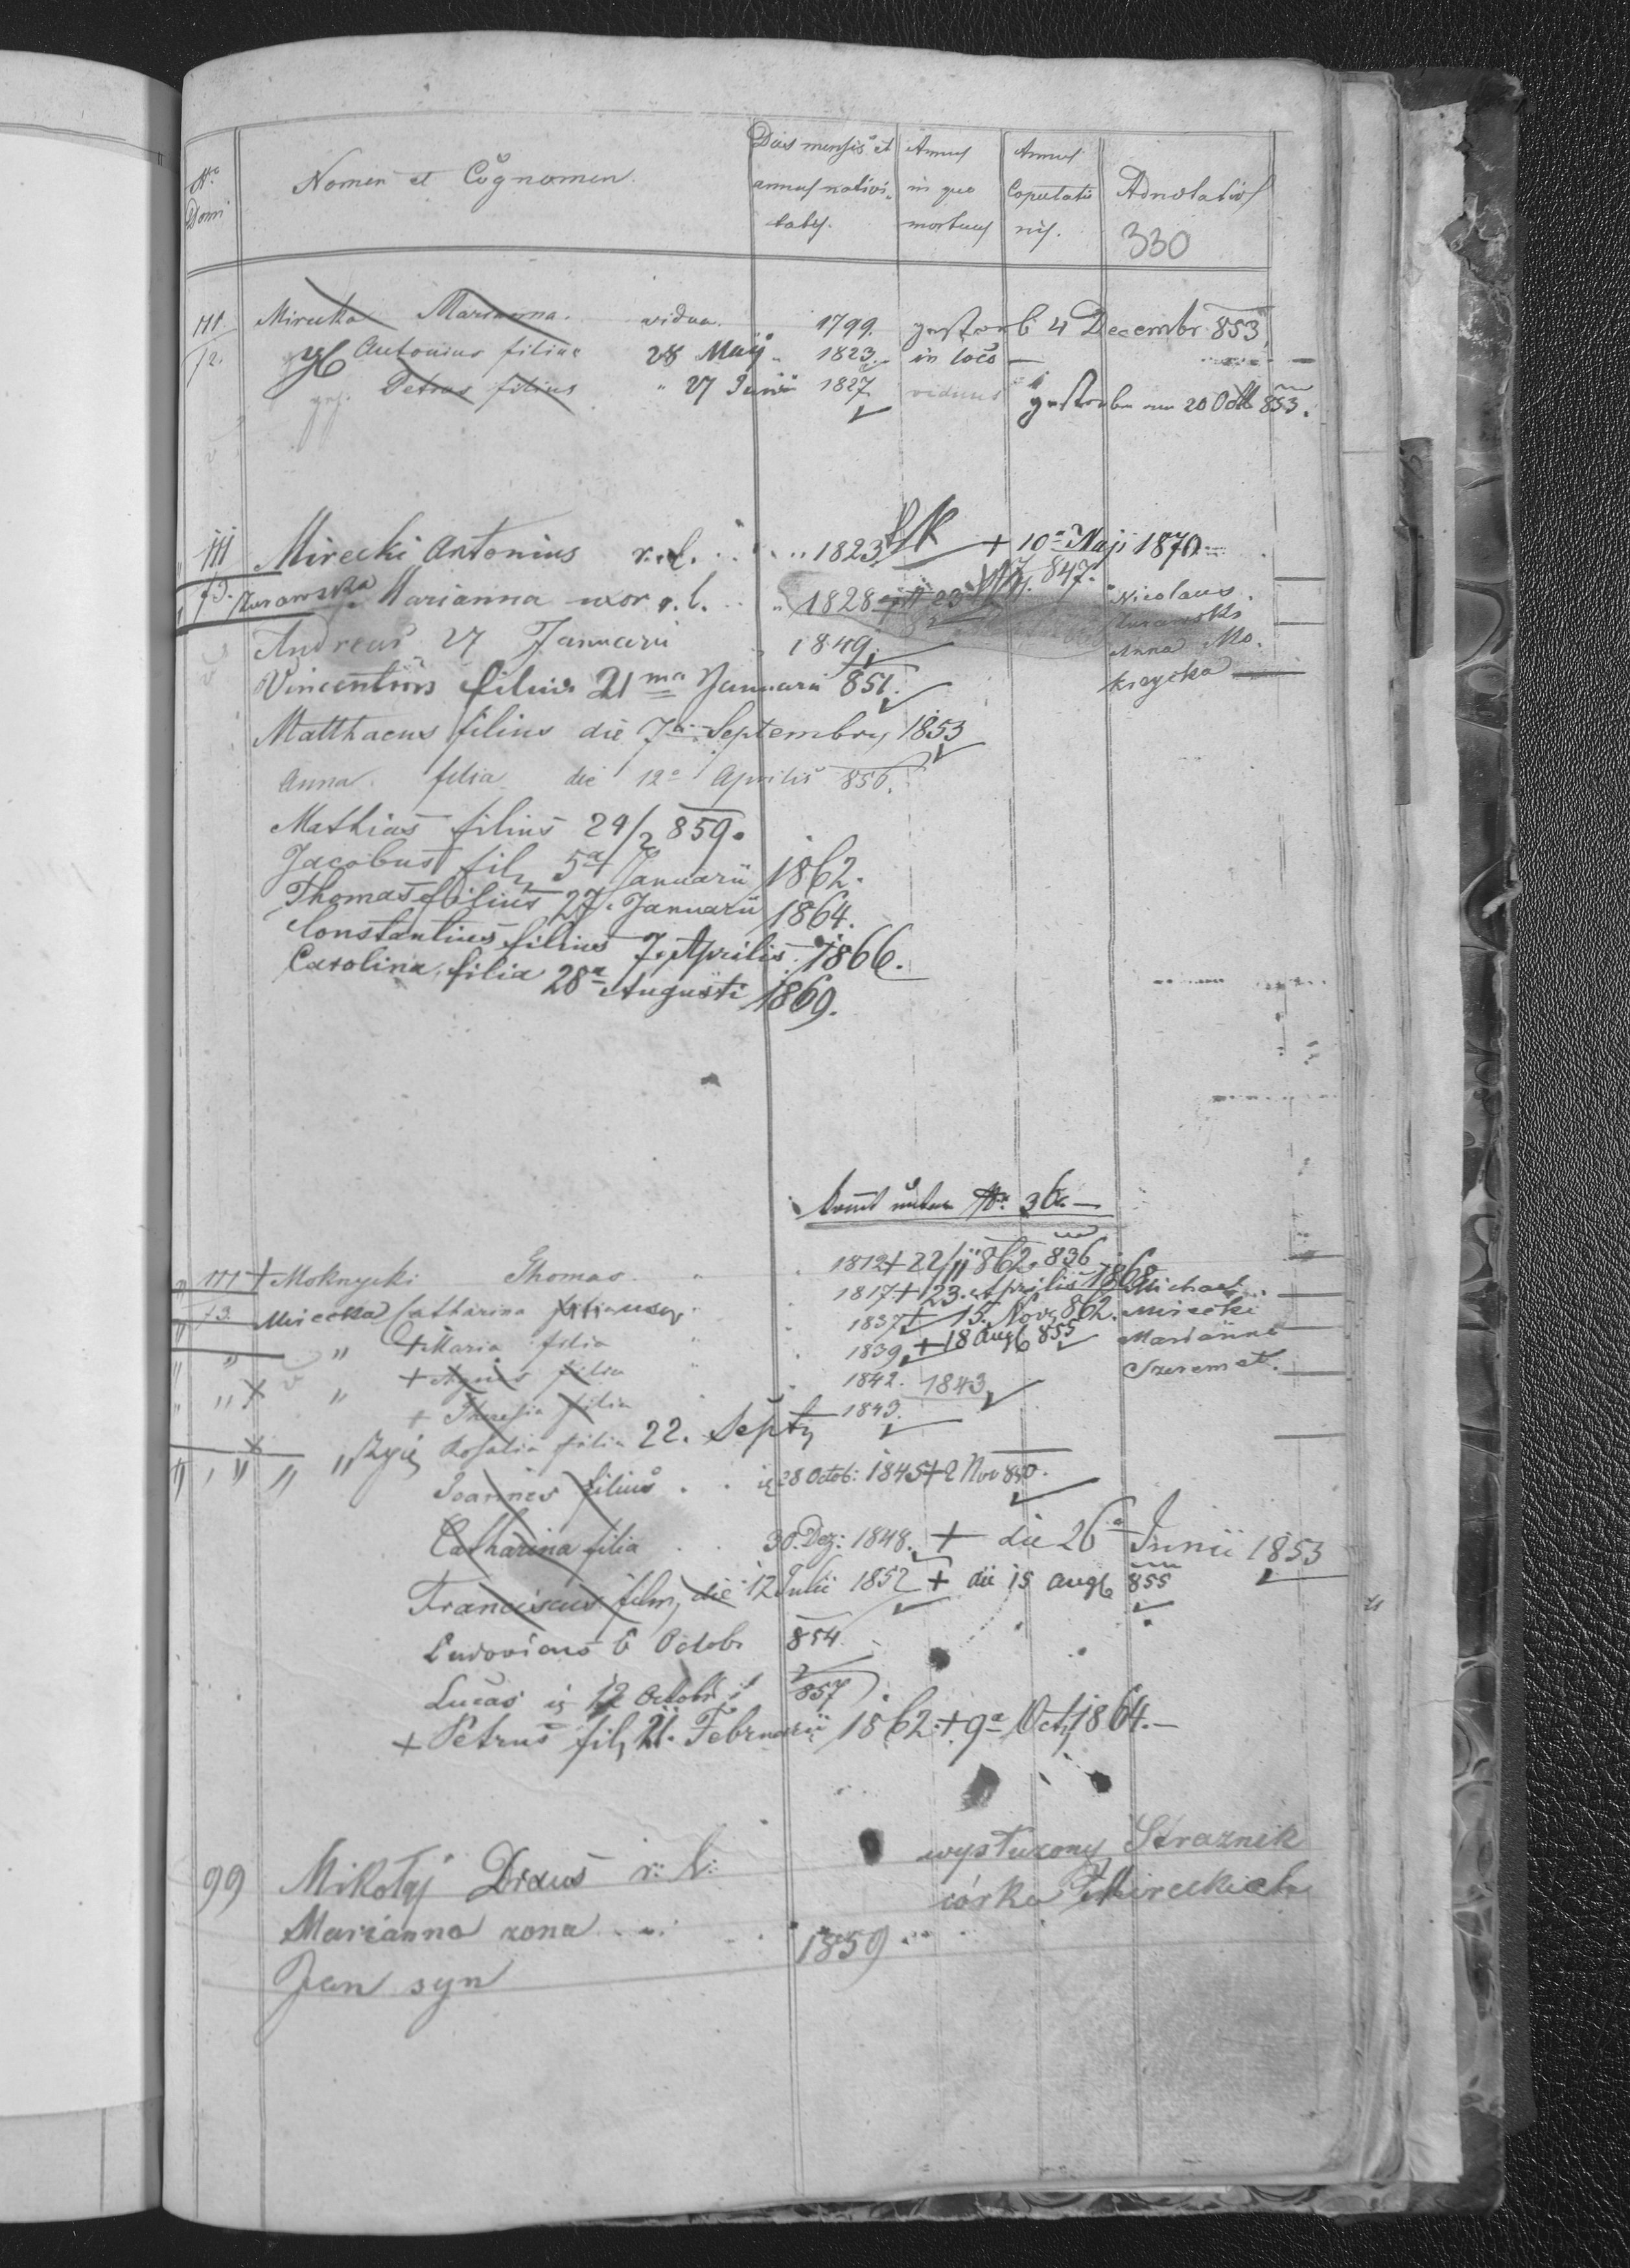 Nro Domi
Nomen et Cognomen.
Dies mensis et annus nativitatis.
Annus in quo mortuus
Annus Copulationis.
Adnotatio
330
111. Mirecka Marianna. vidua. 1799. gestorb 4 Decembr 853.
72. Antonius filius 28 Maij 1823. in loco —
Petrus filius 27 Junii 1827 viduus gestorben am 20 Octb 853.
111 Mirecki Antonius r. l. 1823. + 10a Maji 1870.
73. Zurawska Marianna uxor r. l. 1828 847. Nicolaus
Andreas 27 Januarii 1849. Anna Mo-
Vincentius filius 21ma Januarii 851. krzycka
Matthaeus filius die 7a Septembris 1853
Anna filia die 12a Aprilis 856.
Mathias filius 24/2 859.
Jacobus fil. 5a Januarii 1862.
Thomas filius 27. Januarii 1864.
Constantius filius 7. Aprilis 1866.
Carolina, filia 28a Augusti 1869.
kommt unter No. 36. —
111 + Moknycki Thomas 1812 + 22/11 862. 836
73. Mirecka Catharina filia uxor 1817 + 23. Aprilis 1868 Michael
" " + Maria filia 1837 + 15. Nov 862. Mirecki
" " + Agnes filia 1839 + 18 Aug 855 Marianna
+ Theresia filia 1842. 1843 Szeremet.
" " " żyje Rosalia filia 22. Sept 1843.
Joannes filius 28 Octob: 1845 + 2 Nov 850.
Catharina filia 30. Dez: 1848. + die 26a Junii 1853
Franciscus film, die 12 Julii 1852 + die 15 Aug 855
Ludovicus 6 Octob. 854.
Lucas 12 Octobr 857
+ Petrus fil. 21. Februarii 1862. + 9a Oct 1864. —
99 Mikołaj Draus r: l: wysłuzony Straznik
Marianna zona córka Mireckich
Jan syn 1859